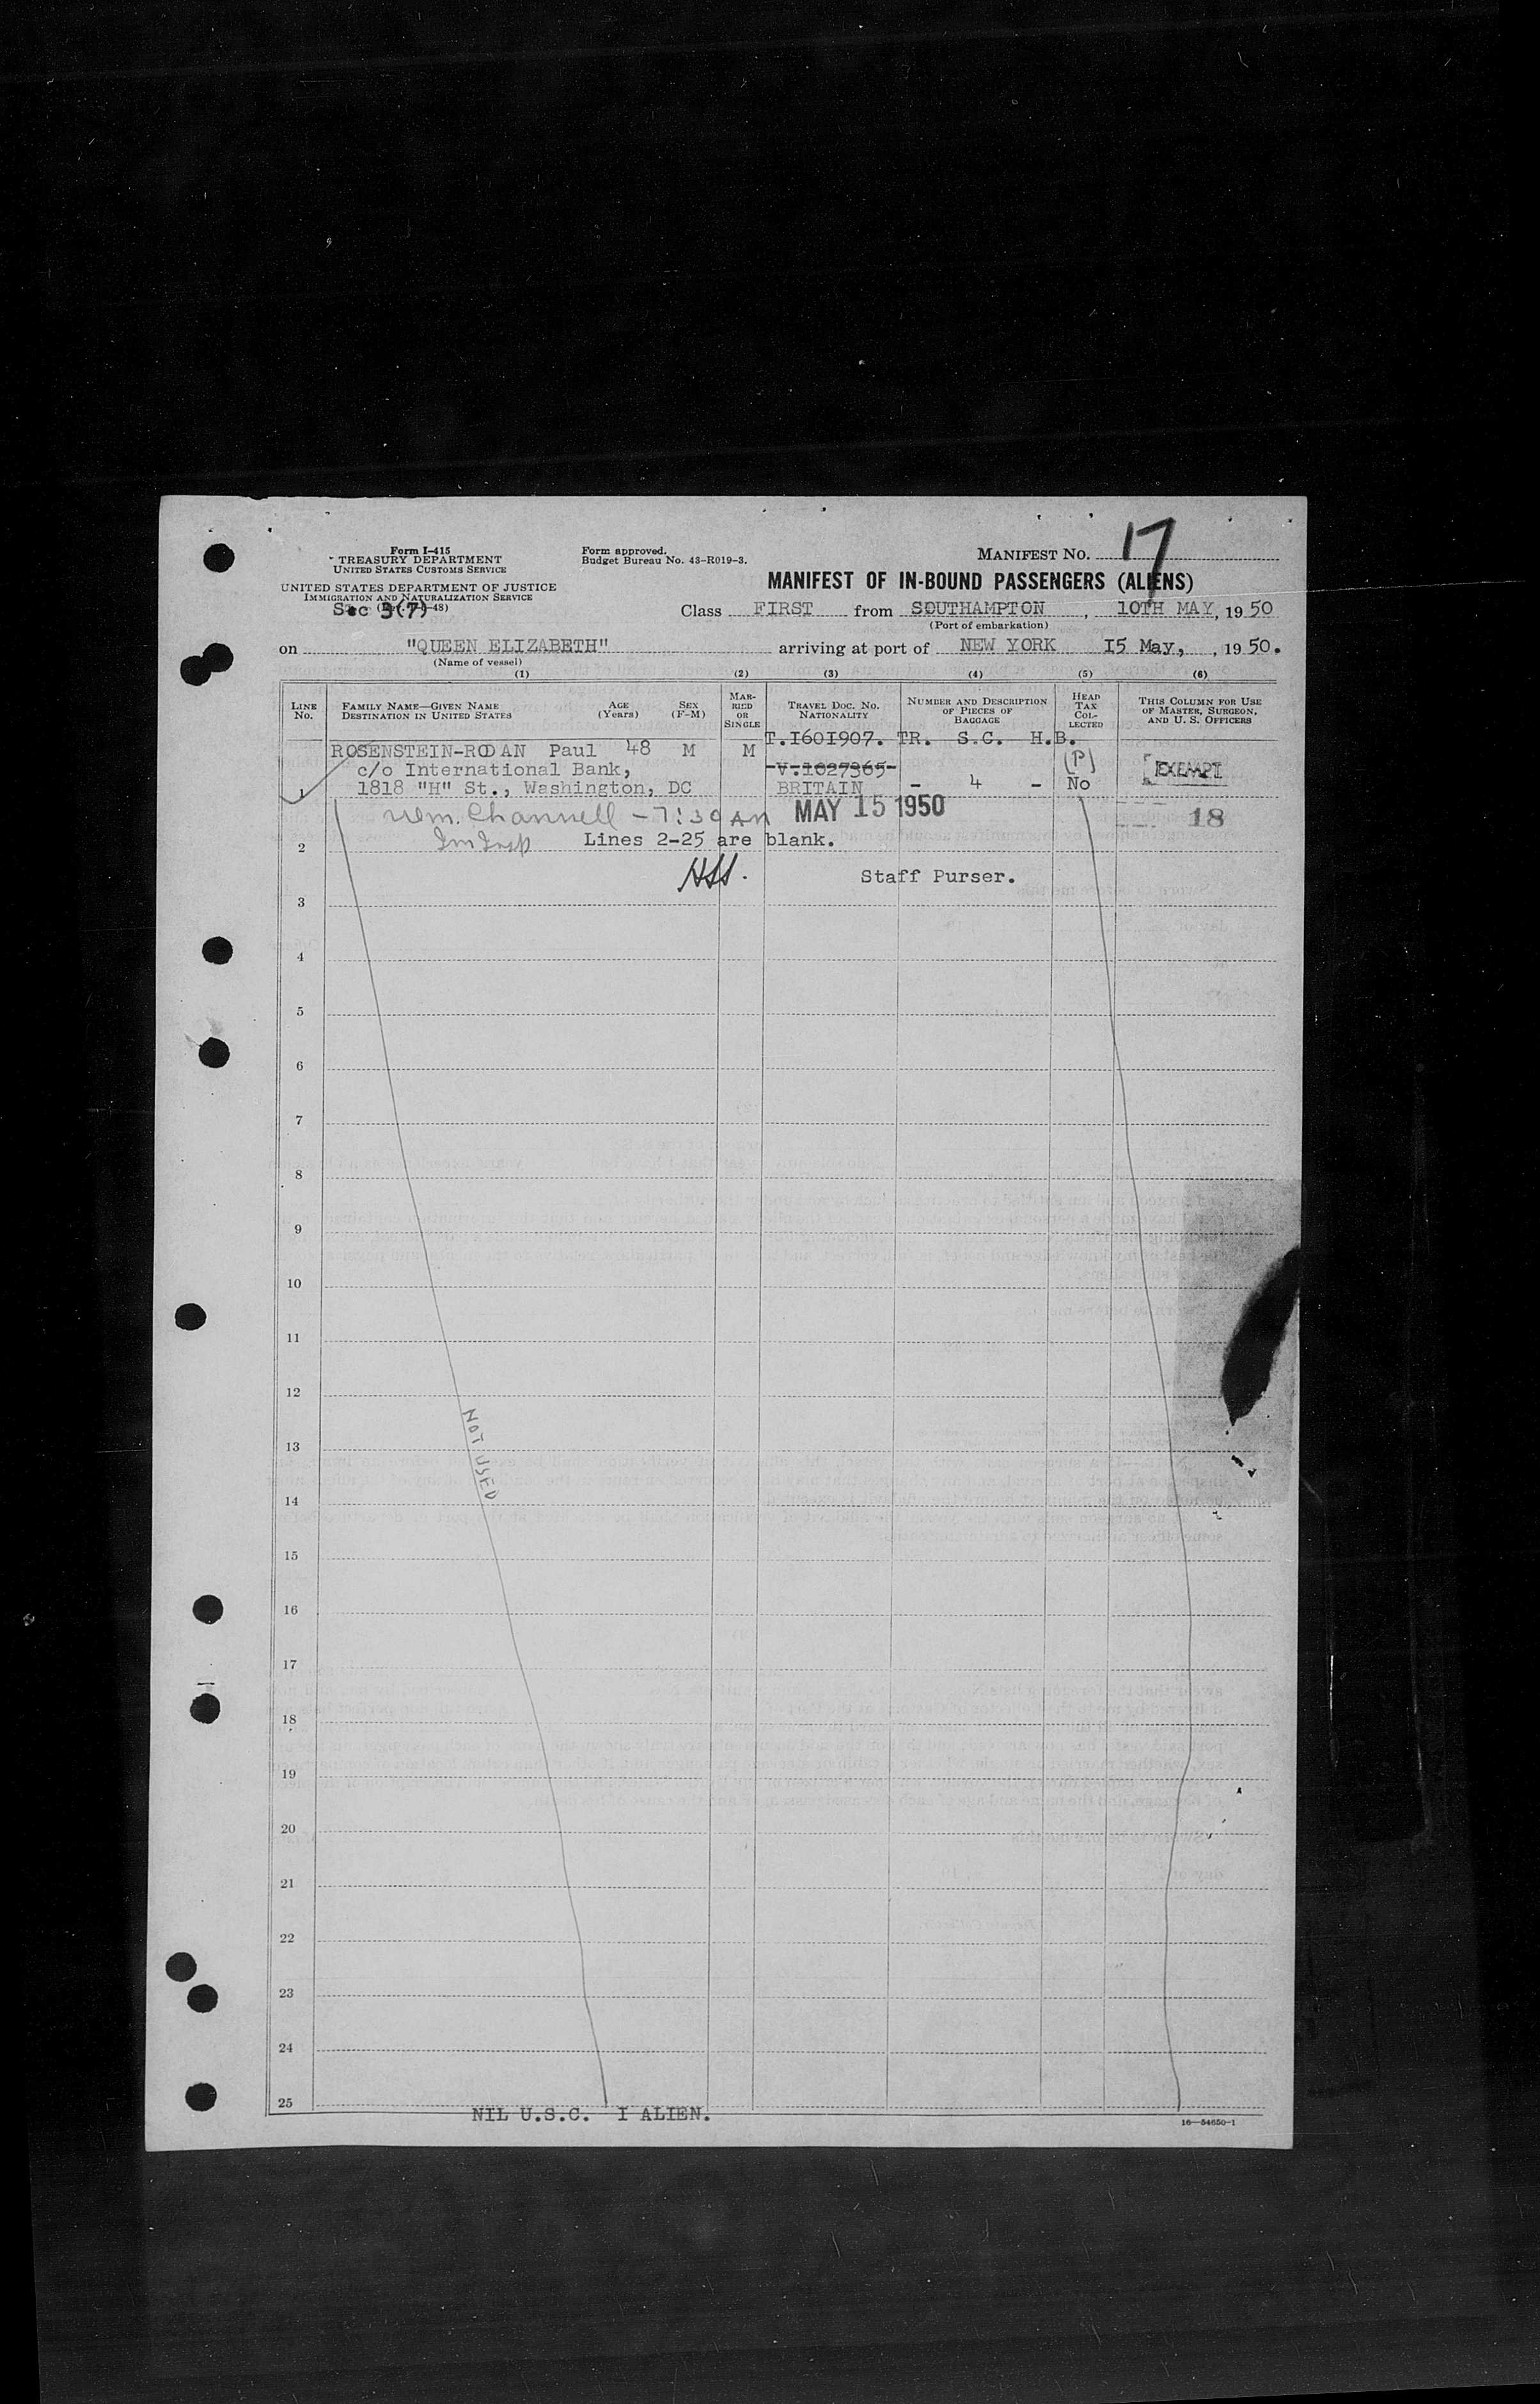 Form I-415
TREASURY DEPARTMENT
UNITED STATES CUSTOMS SERVICE
UNITED STATES DEPARTMENT OF JUSTICE
IMMIGRATION AND NATURALIZATION SERVICE
Sec 3(7) -48)
Form approved.
Budget Bureau No. 43-R019-3.
MANIFEST NO. 17
MANIFEST OF IN-BOUND PASSENGERS (ALIENS)
Class FIRST from SOUTHAMPTON, 10TH MAY, 1950
(Port of embarkation)
on "QUEEN ELIZABETH" arriving at port of NEW YORK I5 May, , 1950.
(Name of vessel)
(1) (2) (3) (4) (5) (6)
LINE NO.
FAMILY NAME—GIVEN NAME
DESTINATION IN UNITED STATES
AGE (Years)
SEX (F-M)
MARRIED OR SINGLE
TRAVEL DOC. NO. NATIONALITY
NUMBER AND DESCRIPTION OF PIECES OF BAGGAGE
HEAD TAX COLLECTED
THIS COLUMN FOR USE OF MASTER, SURGEON, AND U. S. OFFICERS
ROSENSTEIN-RODAN Paul 48 M M T.I60I907. TR. S.C. H.B.
c/o International Bank, -V.1027365- (P) EXEMPT
1 1818 "H" St., Washington, DC BRITAIN - 4 - No
Wm. Channell - 7:30 AM MAY 15 1950 18
Im Insp Lines 2-25 are blank.
2
Staff Purser.
3
4
5
6
7
8
9
10
11
12
NOT USED
13
14
15
16
17
18
19
20
21
22
23
24
25
NIL U.S.C. I ALIEN.
16—54650-1